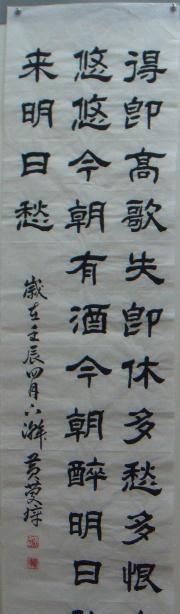 得即高歌失即休多愁多恨
悠悠今朝有酒今朝醉明日
来明日愁
歲在壬辰四月六游黄